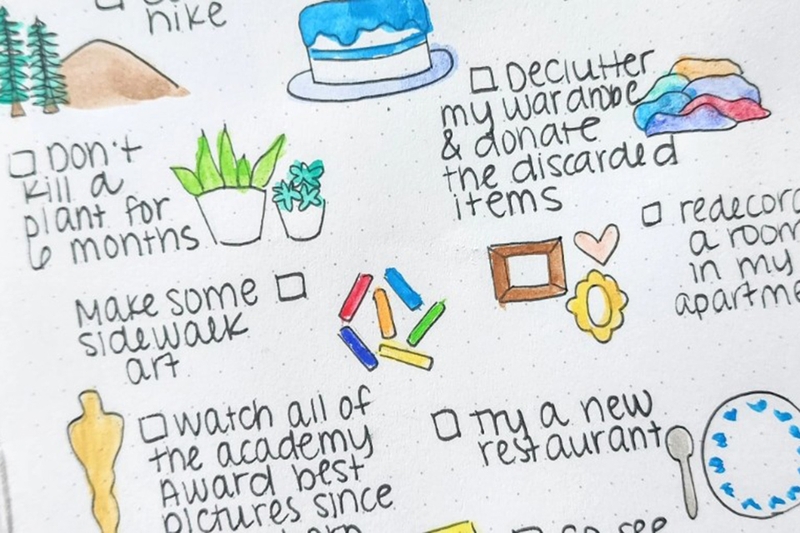 hike
Declutter
my wardrobe
& donate
the discarded
items
Don't
kill a
plant for
6 months
a room
in my
Make some
sidewalk
art
Watch all of
the academy
Award best
pictures since
Try a new
restaurant
go see